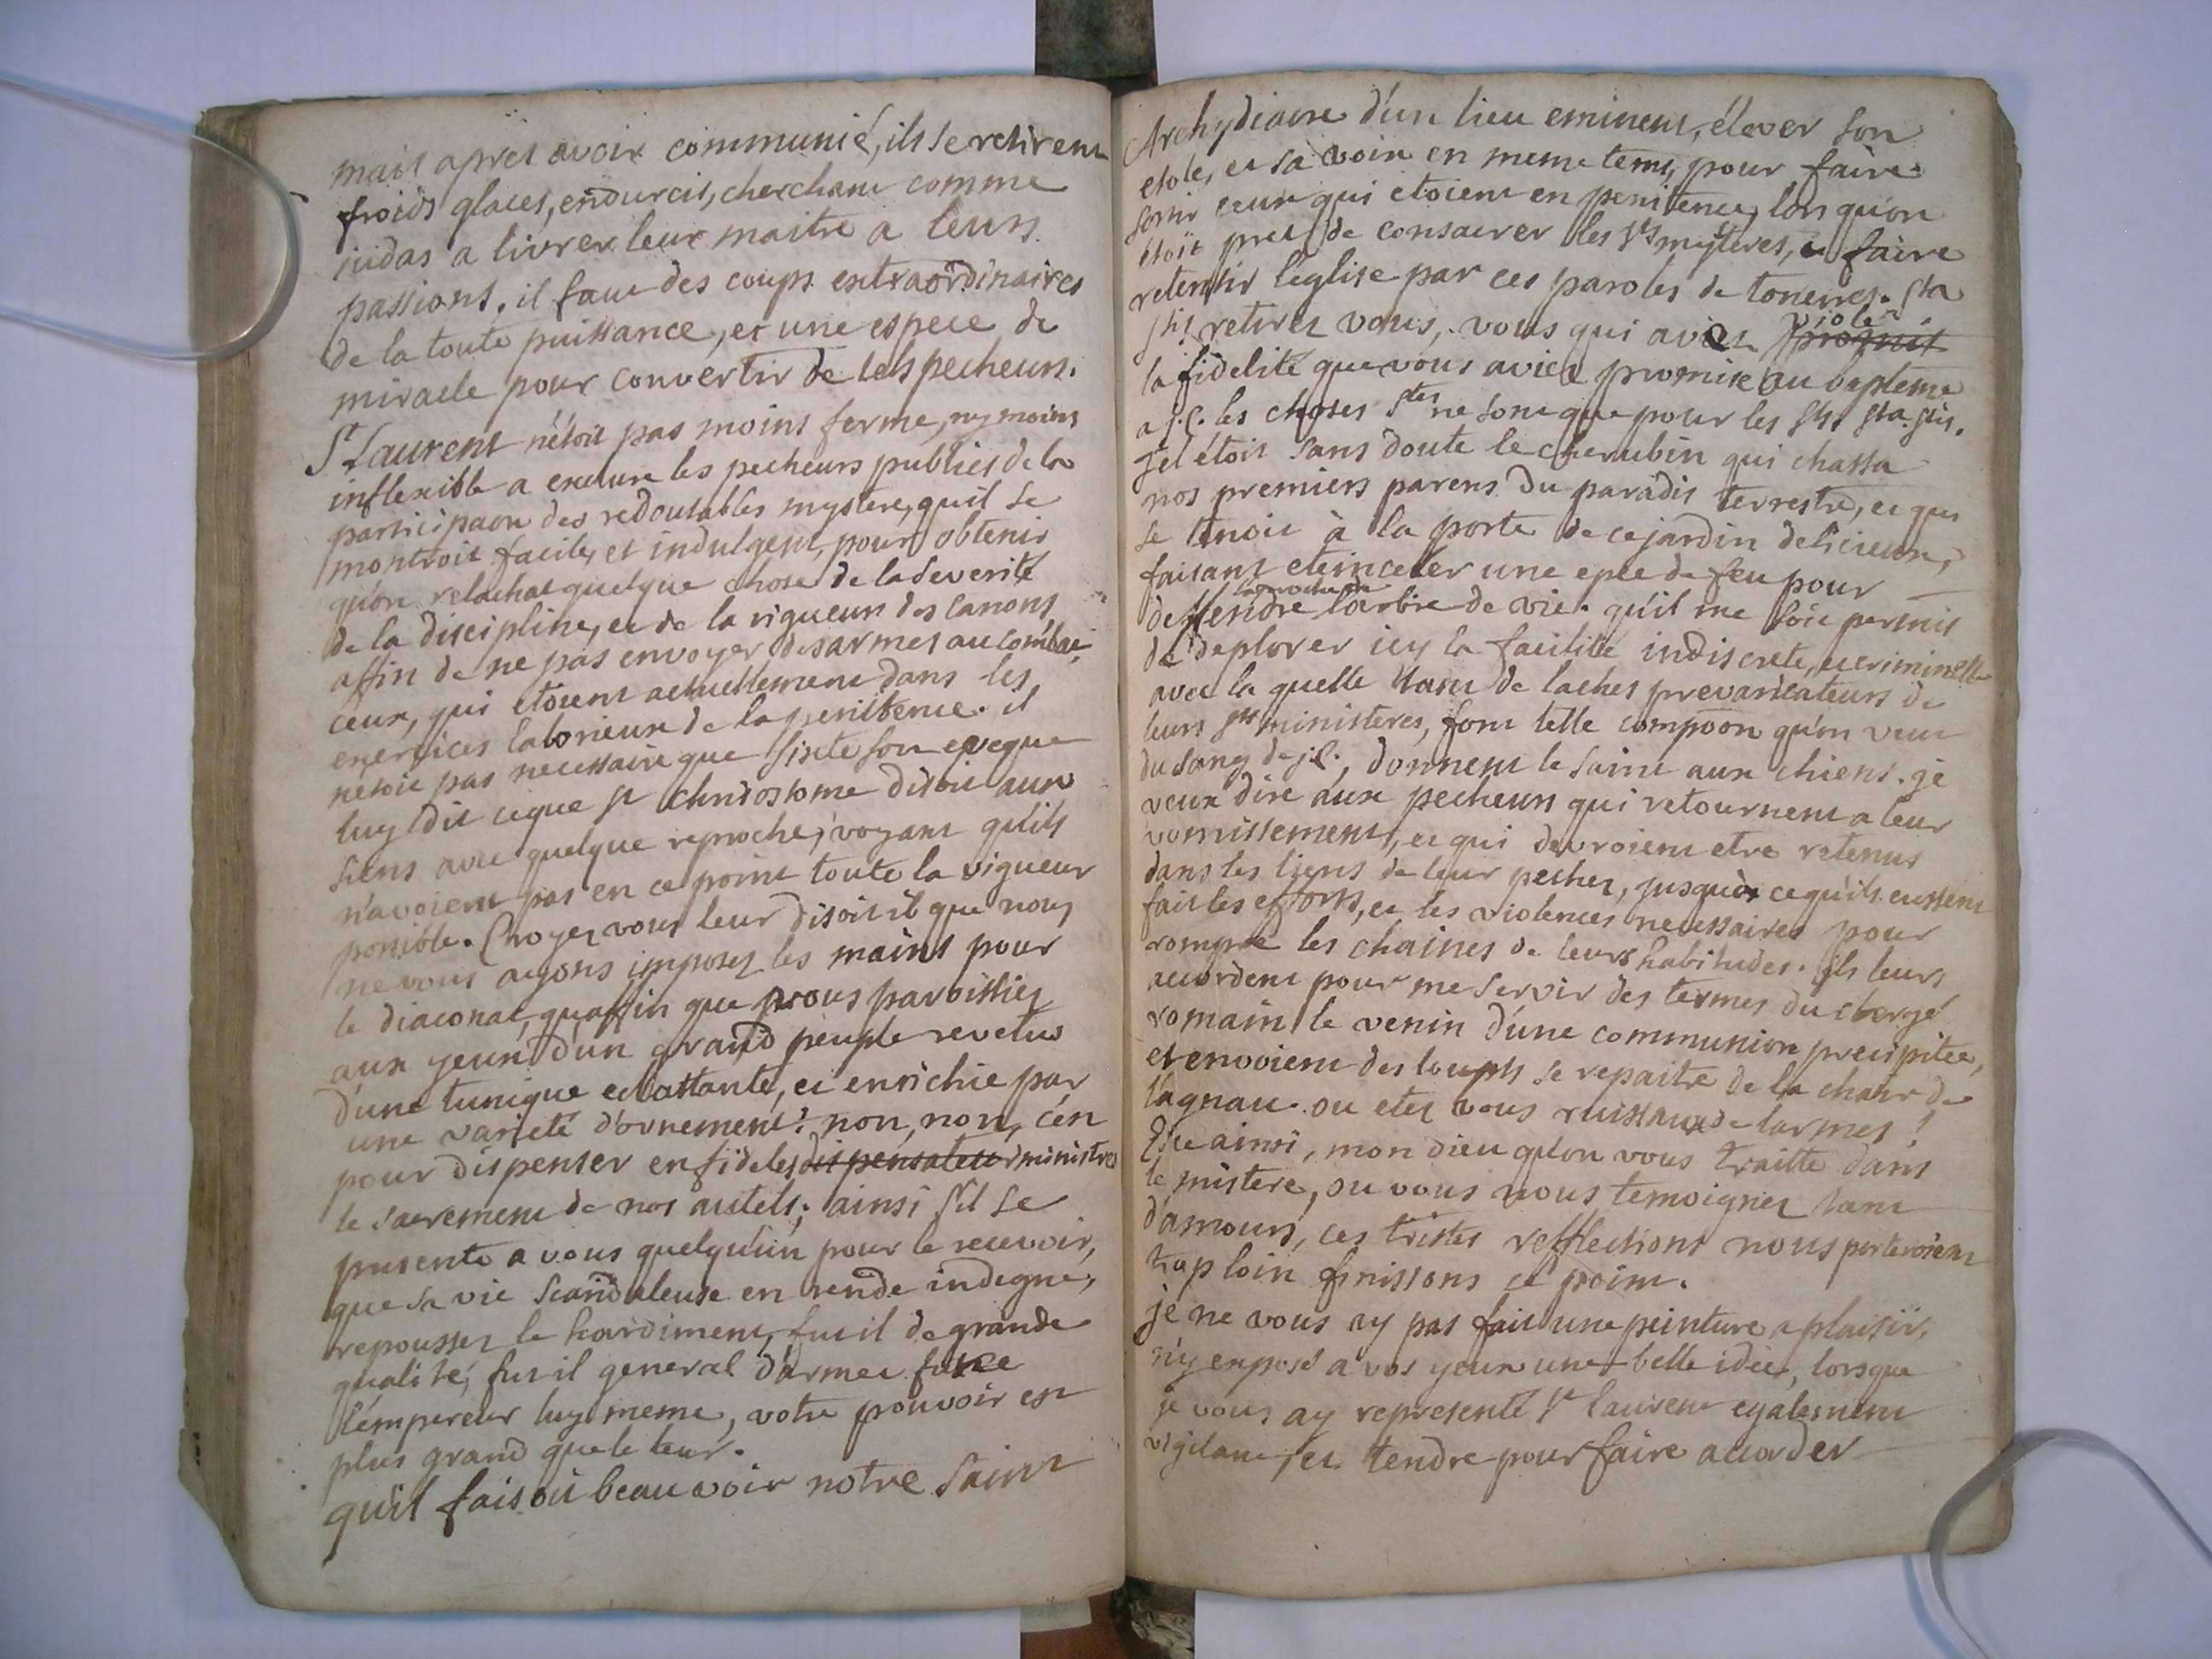 mais apres avoir communié, ils se retirent
froids glaces, endurcis, cherchant comme
judas a livrer leur maitre a leurs
passions. il faut des coups extraordinaires
de la toute puissance, et une espece de
miracle pour convertir de tels pecheurs.
St Laurent n'étoit pas moins ferme, ny moins
inflexible a exclure les pecheurs publics de la
participaon des redoutables mystere, quil se
montroit facile, et indulgent, pour obtenir
qu'on relachat quelque chose de la severité
de la discipline, et de la rigueur des canons,
affin de ne pas envoyer des armes au combat
ceux, qui etoient actuellement dans les
exercices laborieux de la penitence. il
n'etoit pas necessaire que Sixte son eveque
luy dit ce que St chrisostome disoit aux
siens avec quelque reproche, voyant qu'ils
n'avoient pas en ce point toute la vigueur
possible. Croyez vous leur disoit il que nous
ne vous ayons imposez les mains pour
le diaconat, qu'affin que vous paroissiez
aux yeux d'un grand peuple revetus
d'une tunique eclattante, et enrichie par
une varieté d'ornement? non, non, c'en
pour dispenser en fideles dispensateur ministres
le sacrement de nos autels; ainsi s'il se
presente a vous quelqu'un pour le recevoir,
que sa vie scandaleuse en rende indigne,
repoussez le hardiment, fut il de grande
qualité, fut il general d'armée fusce
l'empereur luy meme, votre pouvoir est
plus grand que le leur.
qu'il faisoit beau voir notre saint
Archydiacre d'un lieu eminent, élever son
etole, et sa voix en meme tems, pour faire
sortir ceux qui etoient en penitence, lors qu'on
etoit prest de consacrer les Sts mysteres, et faire
retentir l'eglise par ces paroles de tonerres. Sta
Stis retirez vous, vous qui avez violé
la fidelité que vous aviez promise au bapteme
a j.C. les choses Stes ne sont que pour les Sts Sta Stis.
Tel étoit sans doute le cherubin qui chassa
nos premiers parens du paradis terrestre, et qui
se tenoit à la porte de ce jardin delicieux,
faisant etinceler une epée de feu pour
deffendre l'aproche de l'arbre de vie. qu'il me soit permis
de deplorer icy la facilité indiscrete, et criminelle
avec la quelle tant de laches prevaricateurs de
leurs Sts ministeres, font telle compoon qu'on veut
du sang de j.C., donnent le saint aux chiens. je
veux dire aux pecheurs qui retournent a leur
vomissement, et qui devroient etre retenus
dans les liens de leur pechez, jusqu'à ce qu'ils eussent
fait les efforts, et les violences necessaires pour
rompre les chaines de leurs habitudes. ils leurs
accordent pour me servir des termes du clergé
romain le venin d'une communion precipitée,
et envoient des loups se repaitre de la chair de
l'agnau. ou etes vous ruissaux de larmes!
Que ainsi, mon dieu qu'on vous traitte dans
le mistere, ou vous nous temoignez tant
d'amours, ces tristes refflections nous porteroient
trop loin finissons ce point.
je ne vous ay pas fait une peinture a plaisir,
n'y exposé a vos yeux une belle idée, lorsque
je vous ay representé St laurent egalement
vigilant, et tendre pour faire accorder